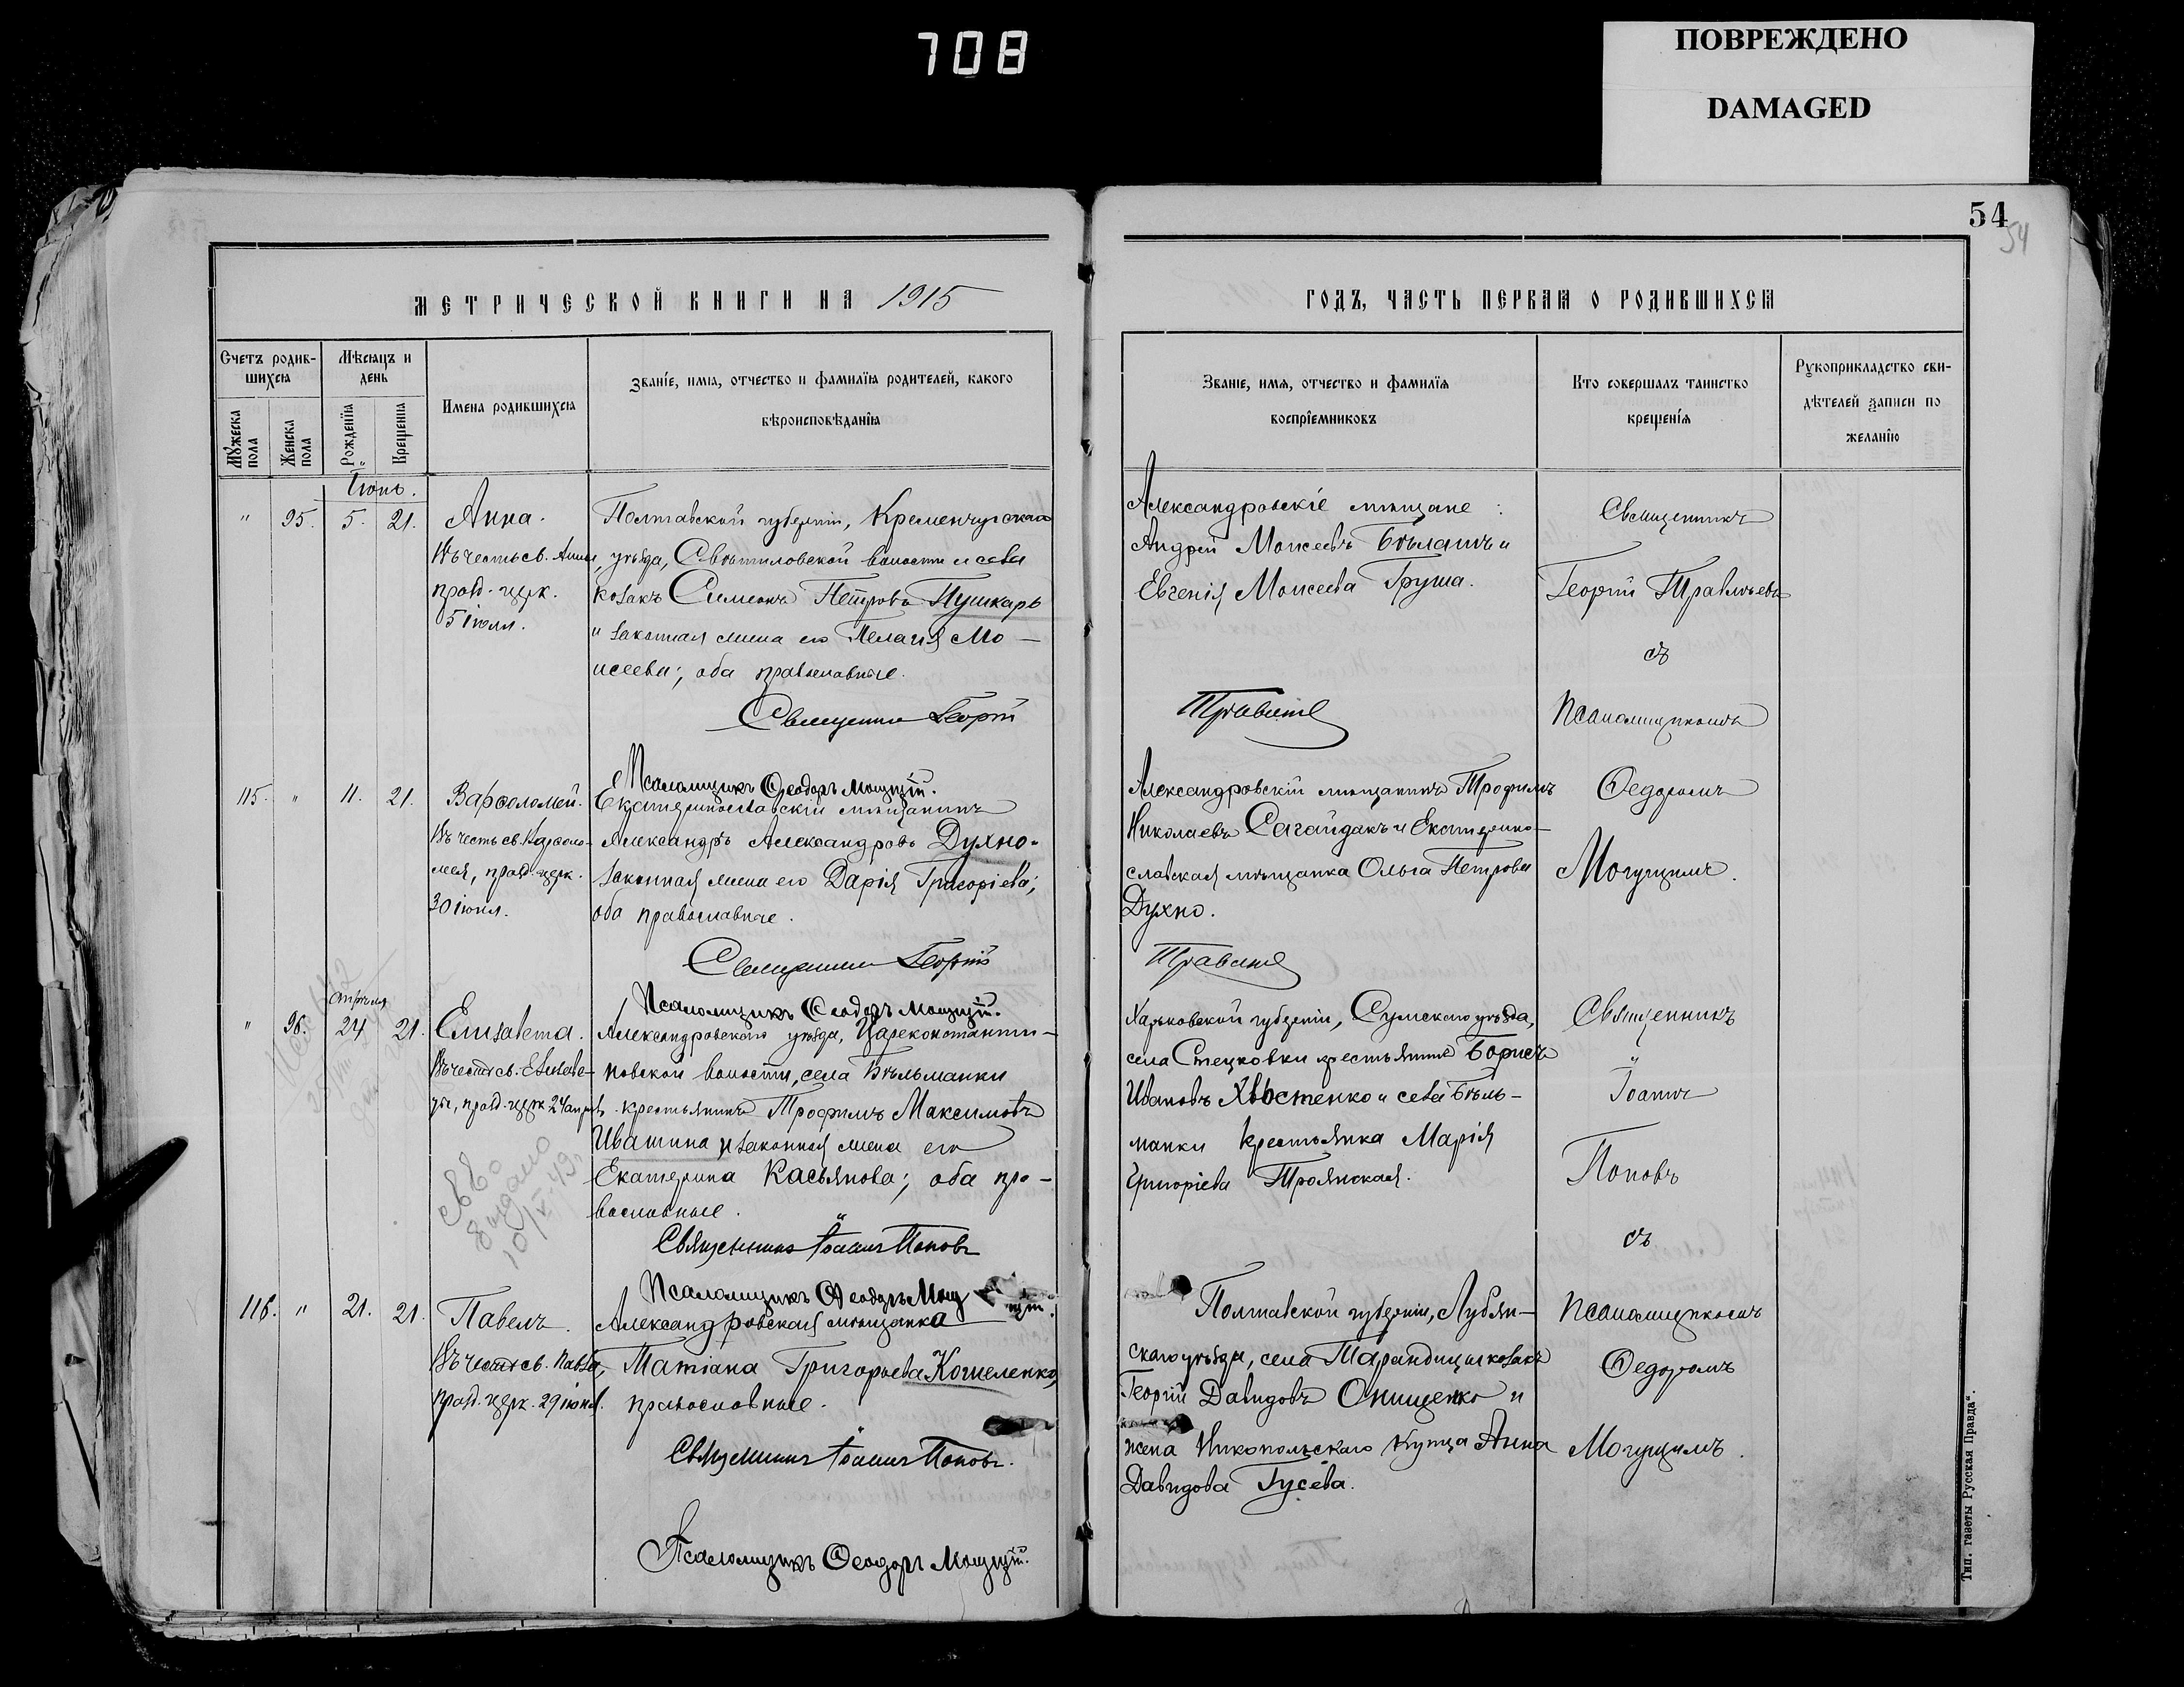 708
ПОВРЕЖДЕНО
DAMAGED
54
54
МЕТРИЧЕСКОЙ КНИГИ НА 1915
ГОДЪ, ЧАСТЬ ПЕРВАЯ О РОДИВШИХСЯ
Счетъ родив-
шихся
Мѣсяцъ и
день
Мужеска пола
Женска пола
Рожденія
Крещенія
Имена родившихся
Званіе, имя, отчество и фамилія родителей, какого
вѣроисповѣданія
Званіе, имя, отчество и фамилія
воспріемниковъ
Кто совершалъ таинство
крещенія
Рукоприкладство сви-
дѣтелей записи по
желанію
Іюнь.
" 95. 5. 21.
Анна.
Въ честь св. Анны,
празд. церк.
5 іюля.
Полтавской губерніи, Кременчугскаго
уѣзда, Святиловской волости и села
козакъ Симеонъ Петровъ Пушкарь
и законная жена его Пелагія Мо-
исеева; оба православные.
Священникъ Георгій
Псаломщикъ Ѳеодоръ Могущій.
Александровскіе мѣщане:
Андрей Моисеевъ Бѣлашъ и
Евгенія Моисеева Груша.
Травлѣевъ
Священникъ
Георгій Травлѣевъ
съ
Псаломщикомъ
Ѳедоромъ
Могущимъ.
115. " 11. 21.
Варѳоломей.
Въ честь св. Варѳоло-
мея, празд. церк.
30 іюня.
Екатеринославскій мѣщанинъ
Александръ Александровъ Духно.
законная жена его Дарія Григоріева;
оба православные.
Священникъ Георгій
Псаломщикъ Ѳеодоръ Могущій.
Александровскій мѣщанинъ Трофимъ
Николаевъ Сагайдакъ и Екатерино-
славская мѣщанка Ольга Петрова
Духно.
Травлѣевъ
апрѣля
" 96. 24 21.
Елизавета.
Въ честь св. Елизаве-
ты, празд. церк 24 апрѣля
св-во
выдано
10/V 49.
Александровскаго уѣзда, Цареконстанти-
новской волости, села Бѣльманки
крестьянинъ Трофимъ Максимовъ
Ивашина и законная жена его
Екатерина Касьянова; оба пра-
вославные.
Священникъ Іоаннъ Поповъ
Псаломщикъ Ѳеодоръ Могущій.
Харьковской губерніи, Сумскаго уѣзда,
села Стецковки крестьянинъ Борисъ
Ивановъ Хвостенко и села Бѣль-
манки крестьянка Марія
Григоріева Троянская.
Священникъ
Іоаннъ
Поповъ
съ
Псаломщикомъ
Ѳедоромъ
Могущимъ.
116. " 21. 21.
Павелъ.
Въ честь св. Павла,
празд. церк. 29 іюня.
Александровская мѣщанка
Татіана Григорьева Кошеленко,
православные.
Священникъ Іоаннъ Поповъ.
Псаломщикъ Ѳеодоръ Могущій.
Полтавской губерніи, Лубян-
скаго уѣзда, села Тарандинцы козакъ
Георгій Давидовъ Онищенко и
жена Никопольскаго купца Анна
Давидова Гусева.
Тип. газеты Русская Правда".